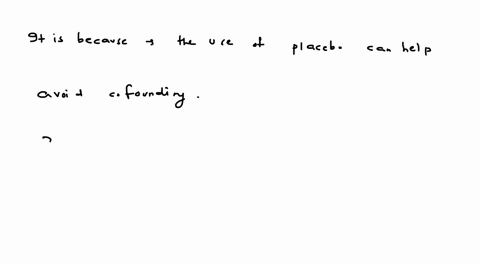 It is because → the use of placebo can help
avoid cofounding.